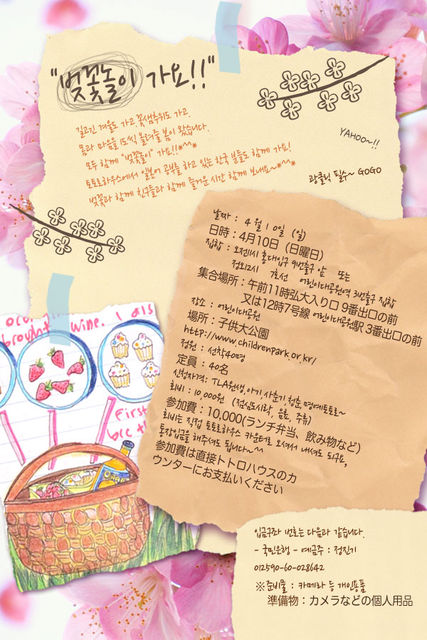 "벚꽃놀이 가요!!"
길고긴 겨울도 가고 꽃샘추위도 가고
몸과 마음을 들썩 들려줄 봄이 왔습니다.
모두 함께 "벚꽃놀이" 가요!!#^^#
토토로하우스에서 일본어 공부를 하고 있는 한국 분들도 함께 가요!
벚꽃과 함께 친구들과 함께 즐거운 시간 함께 보내요~#^^#
YAHOO~!!
GOGO
날짜 : 4월10일 (일)
日時：4月10日（日曜日）
집합 : 오전11시 홍대입구 9번출구 앞 또는
정오12시 7호선 어린이대공원역 3번출구 집합
集合場所：午前11時弘大入り口 9番出口の前
又は12時7号線 어린이대공원駅 3番出口の前
장소 : 어린이대공원
場所：子供大公園
http://www.childrenpark.or.kr/
정원 : 선착40명
定員：40名
신청자격: TLA원생,
회비 : 10,000원 (점심도시락, 음료, 주류)
参加費：10,000(ランチ弁当、飲み物など)
회비는 직접 토토로하우스 카운터로 오셔서 내셔도 되구요,
통장입금을 해주셔도 됩니다~^^
参加費は直接トトロハウスのカ
ウンターにお支払いください
I als
brought wine.
First
입금구좌 번호는 다음과 같습니다.
- 국민은행 - 예금주 : 정진기
012590-60-028642
※준비물 : 카메라 등 개인용품
準備物：カメラなどの個人用品